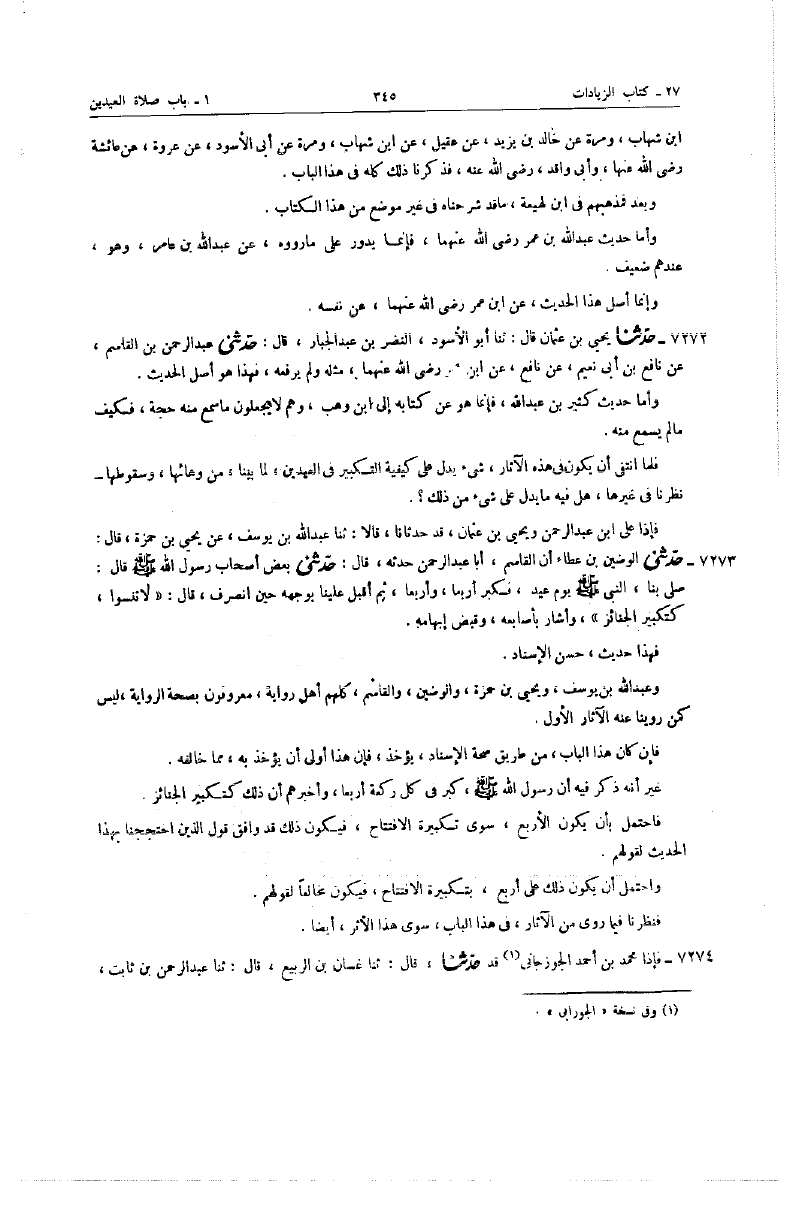 ٢٧ ـ كتاب الزيادات ٣٤٥ ١ ـ باب صلاة العيدين
ابن شهاب ، ومرة عن خالد بن يزيد ، عن عقيل ، عن ابن شهاب ، ومرة عن أبى الأسود ، عن عروة ، عن عائشة
رضى الله عنها ، وأبى واقد ، رضى الله عنه ، فذكرنا ذلك كله فى هذا الباب .
وبعد فمذهبهم فى ابن لهيعة ، ماقد شرحناه فى غير موضع من هذا الكتاب .
وأما حديث عبدالله بن عمر رضى الله عنهما ، فإنما يدور على مارووه ، عن عبدالله بن عامر ، وهو ،
عندهم ضعيف .
وإنما أصل هذا الحديث ، عن ابن عمر رضى الله عنهما ، عن نفسه .
٧٢٧٢ ـ حدثنا يحيى بن عثمان قال : ثنا أبو الأسود ، النضر بن عبدالجبار ، قال : حدثنى عبدالرحمن بن القاسم ،
عن نافع بن أبى نعيم ، عن نافع ، عن ابن رضى الله عنهما ، مثله ولم يرفعه ، فهذا هو أصل الحديث .
وأما حديث كثير بن عبدالله ، فإنما هو عن كتابه إلى ابن وهب ، وهم لايجعلون ماسمع منه حجة ، فكيف
مالم يسمع منه .
فلما انتفى أن يكون فى هذه الآثار ، شىء يدل على كيفية التكبير فى العيدين ، لما بينا ، من وهائها ، وسقوطها ـ
نظرنا فى غيرها ، هل فيه مايدل على شىء من ذلك ؟ .
فإذا على ابن عبدالرحمن ويحيى بن عثمان ، قد حدثانا ، قالا : ثنا عبدالله بن يوسف ، عن يحيى بن حمزة ، قال :
٧٢٧٣ ـ حدثنى الوضين بن عطاء أن القاسم ، أبا عبدالرحمن حدثه ، قال : حدثنى بعض أصحاب رسول الله ﷺ قال :
صلى بنا ، النبى ﷺ يوم عيد ، فكبر أربعا ، وأربعا ، ثم أقبل علينا بوجهه حين انصرف ، قال : « لاتنسوا ،
كتكبير الجنائز » ، وأشار بأصابعه ، وقبض إبهامه .
فهذا حديث ، حسن الإسناد .
وعبدالله بن يوسف ، ويحيى بن حمزة ، والوضين ، والقاسم ، كلهم أهل رواية ، معروفون بصحة الرواية ، ليس
كمن روينا عنه الآثار الأول .
فإن كان هذا الباب ، من طريق صحة الإسناد ، يؤخذ ، فإن هذا أولى أن يؤخذ به ، مما خالفه .
غير أنه ذكر فيه أن رسول الله ﷺ ، كبر فى كل ركعة أربعا ، وأخبرهم أن ذلك كتكبير الجنائز .
فاحتمل بأن يكون الأربع ، سوى تكبيرة الافتتاح ، فيكون ذلك قد وافق قول الذين احتججنا بهذا
الحديث لقولهم .
واحتمل أن يكون ذلك على أربع ، بتكبيرة الافتتاح ، فيكون مخالفاً لقولهم .
فنظرنا فيما روى من الآثار ، فى هذا الباب ، سوى هذا الأثر ، أيضا .
٧٢٧٤ ـ فإذا محمد بن أحمد الجوزجانى(١) قد حدثنا ، قال : ثنا غسان بن الربيع ، قال : ثنا عبدالرحمن بن ثابت ،
(١) وفى نسخة « الجورابى » .